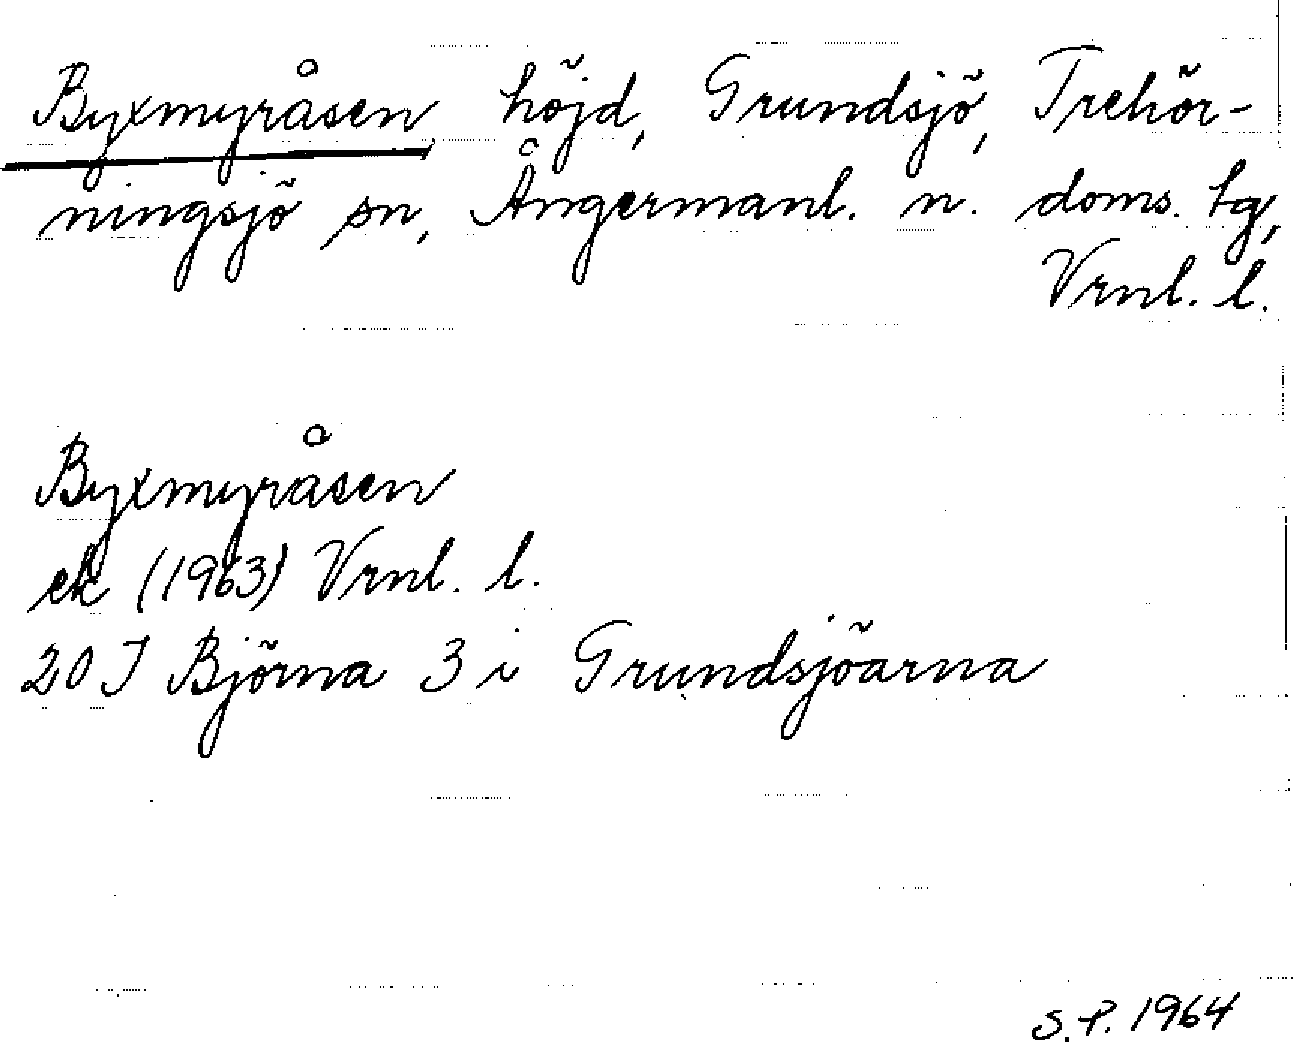 Byxmyråsen, höjd, Grundsjö, Trehör-
ningsjö sn, Ångermanl. n. doms. tg,
Vrnl. l.
Byxmyråsen
ek (1963) Vrnl. l.
20 J Björna 3 i Grundsjöarna
S.P. 1964